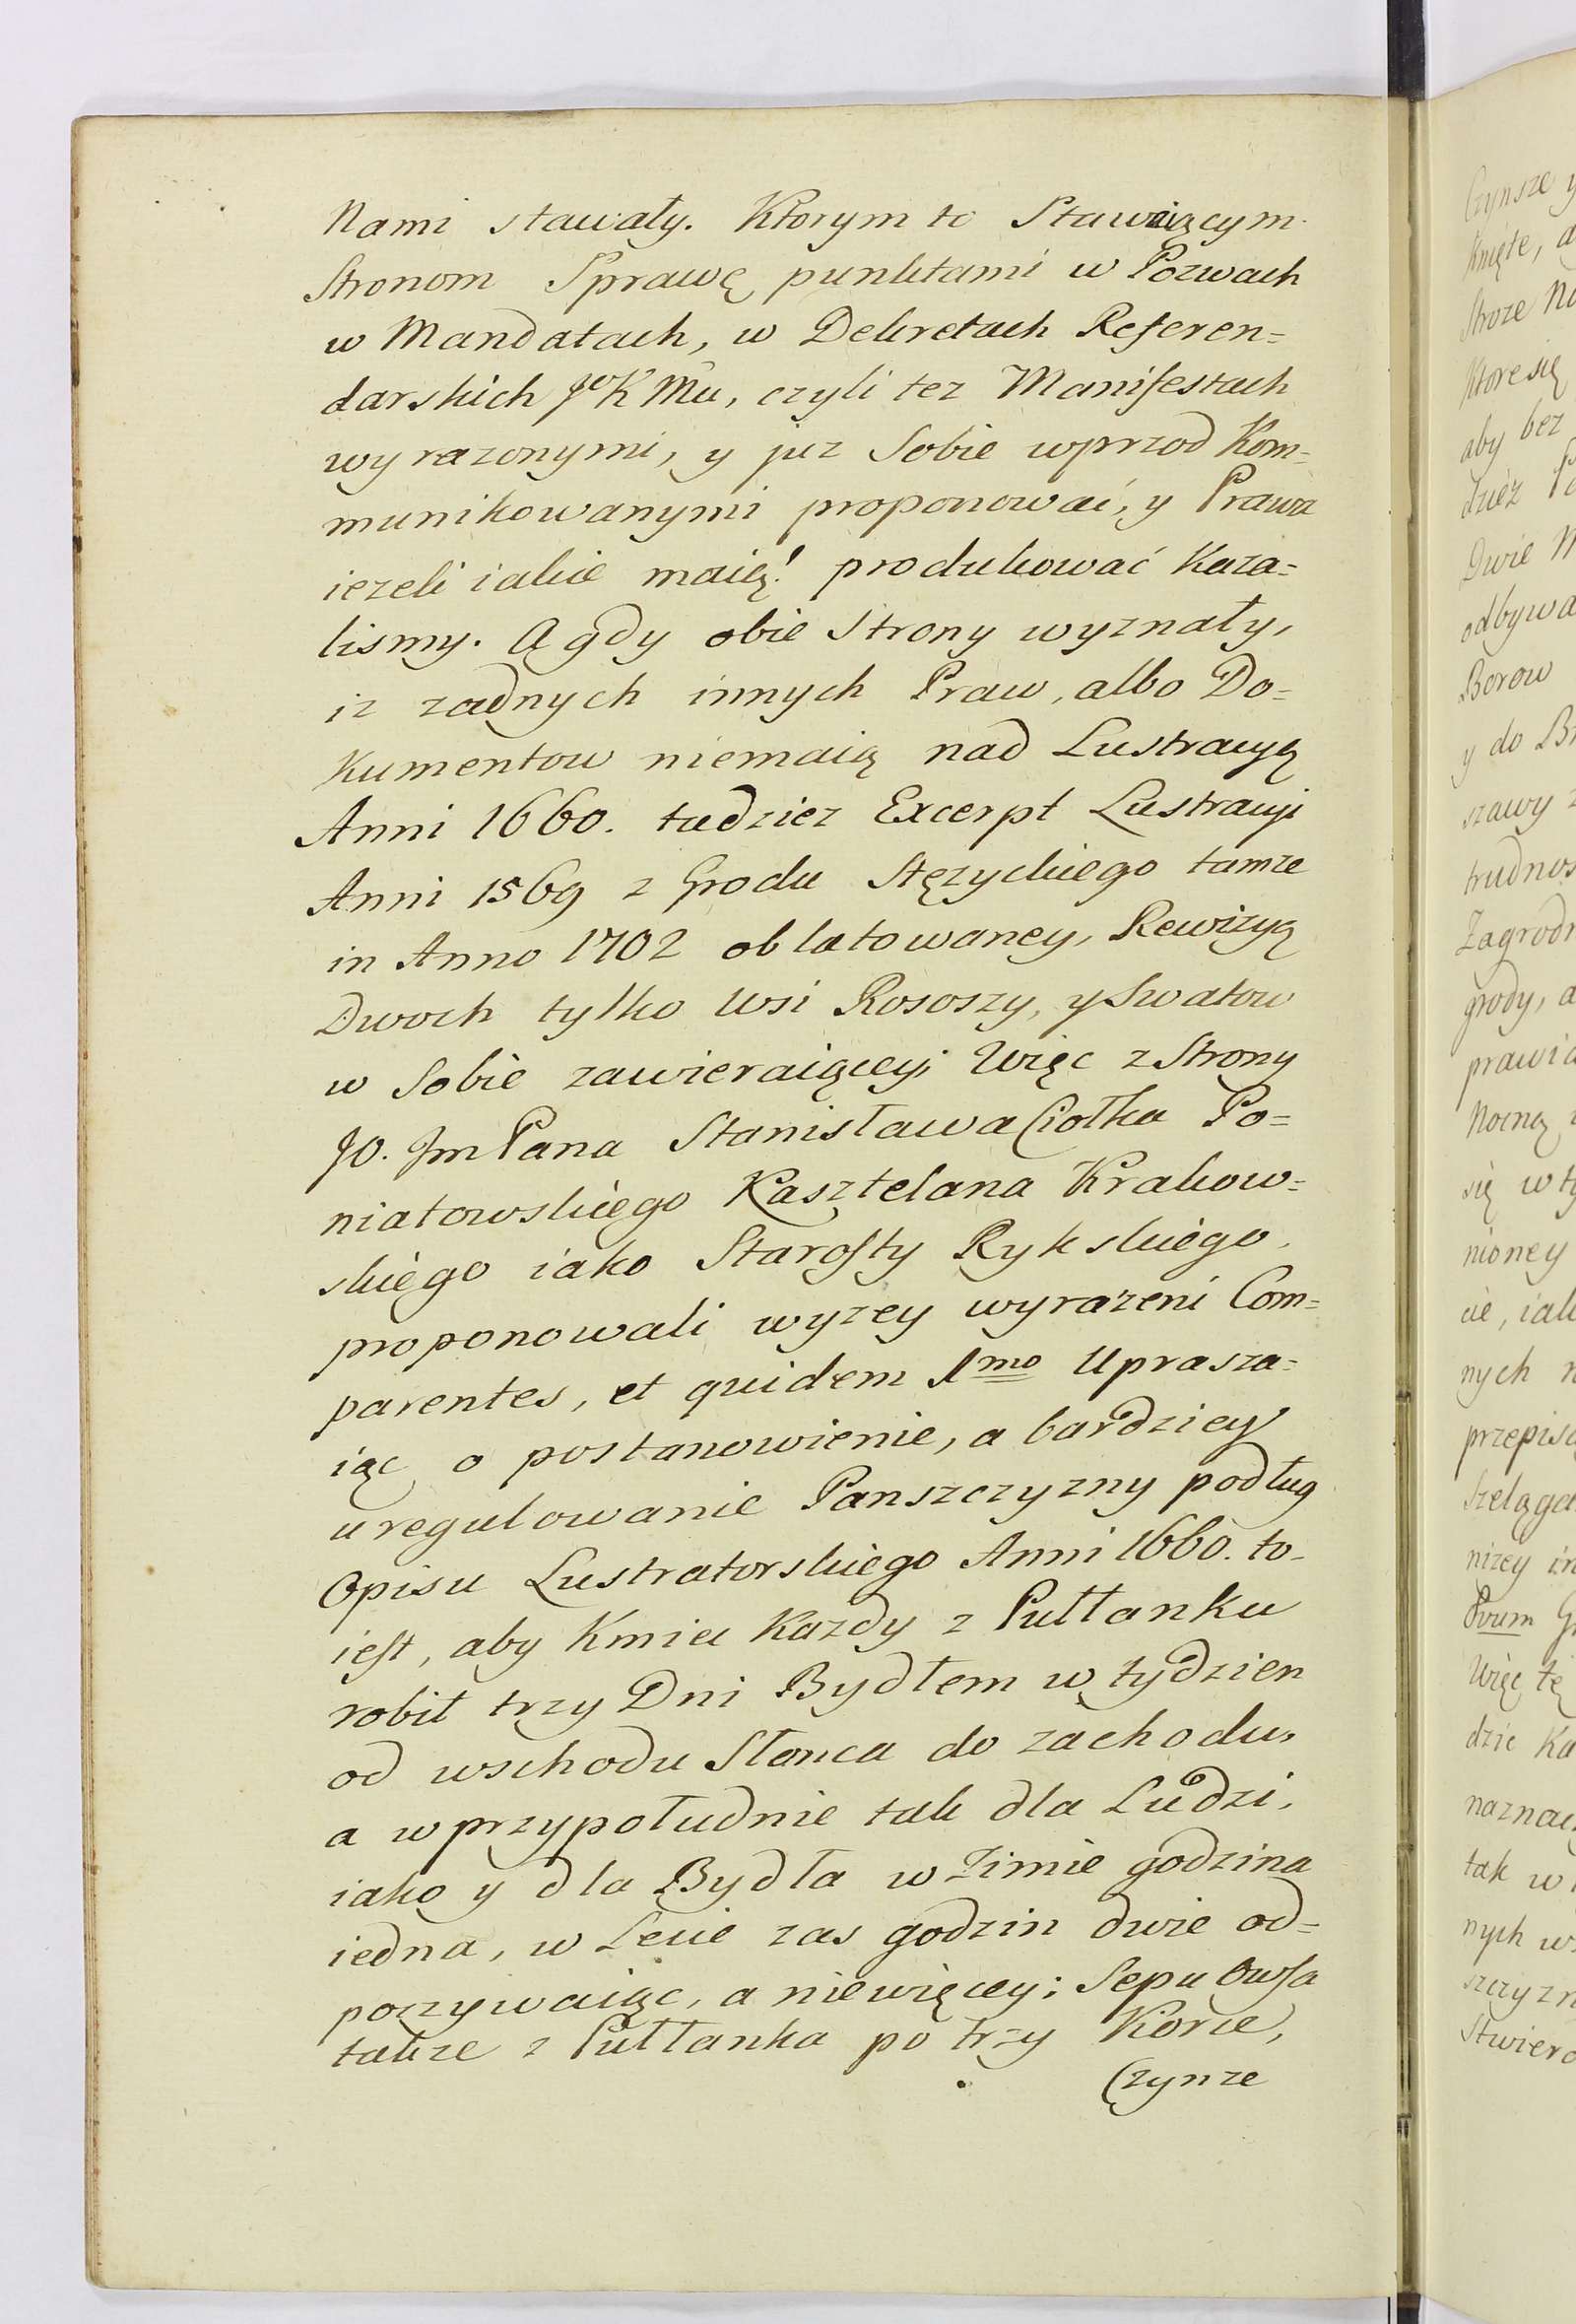 Nami stawały. Ktorym to Stawaiącym
Stronom Sprawę punktami w Pozwach
w Mandatach, w Dekretach Referen=
darskich JoK Mci, czyli tez Manifestach
wyrazonymi, y juz Sobie wprzod Kom=
munikowanymi proponować, y Prawa
iezeli iakie maią! produkować Kaza=
lismy. A gdy obie Strony wyznały,
iz zadnych innych Praw, albo Do=
kumentow niemaią nad Lustracyą
Anni 1660. tudziez Excerpt Lustracyi
Anni 1569 z Grodu Stęzyckiego tamze
in Anno 1702 oblatowaney, Rewizyą
Dwoch tylko Wsi Rososzy, y Swatow
w Sobie zawieraiącey; Więc z Strony
JO. Jm Pana Stanisława Ciołka Po=
niatowskiego Kasztelana Krakow=
skiego iako Starosty Rykskiego,
proponowali wyzey wyrażeni Com=
parentes, et quidem 1mo Uprasza=
iąc o postanowienie, a bardziey
uregulowanie Panszczyzny podług
Opisu Lustratorskiego Anni 1660. to
iest, aby Kmieć Kazdy z Pułłanku
robił trzy Dni Bydłem w tydzien
od wschodu Słonca do zachodu,
a w przypołudnie tak dla Ludzi,
iako y dla Bydła w Zimie godzina
iedna, w Lecie zas godzin dwie od=
poczywaiąc, a niewięcey; Sepu Owsa
takze z Pułłanka po trzy Korce,
Czynze
Czynsze y
Stroze
Ktore się
aby bez
Dwie
odbywa
Borow
y do
szawy
Zagrod
grody, a
Nocną
się w
nioney
cie, iak
nych
nizey
Więc
tak w
nych